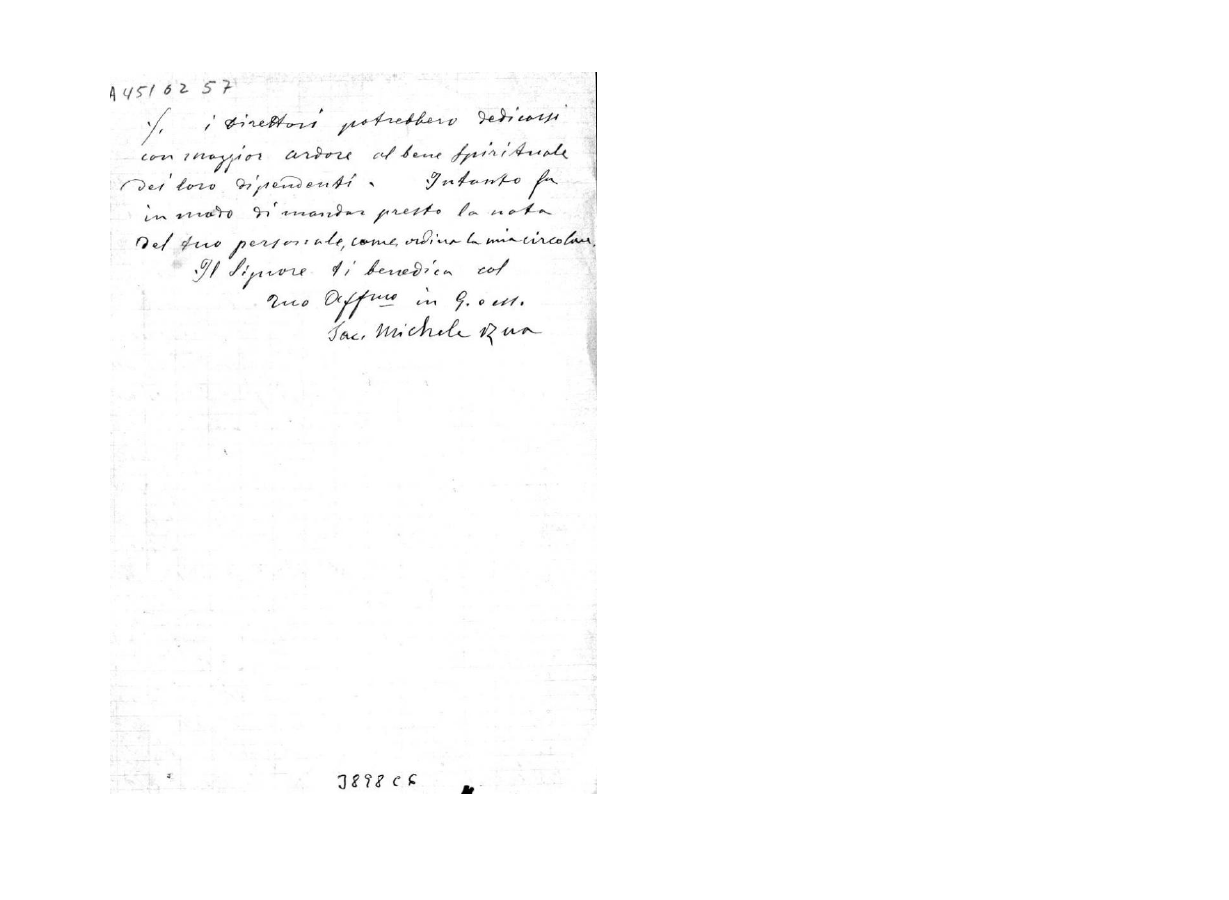 A 4510257
./. i Direttori potrebbero dedicarsi
con maggior ardore al bene spirituale
dei loro dipendenti. Intanto fa
in modo di mandar presto la nota
del tuo personale, come ordina la mia circolare.
Il Signore ti benedica col
tuo Affmo in G. e M.
Sac. Michele Rua
3898 C 6